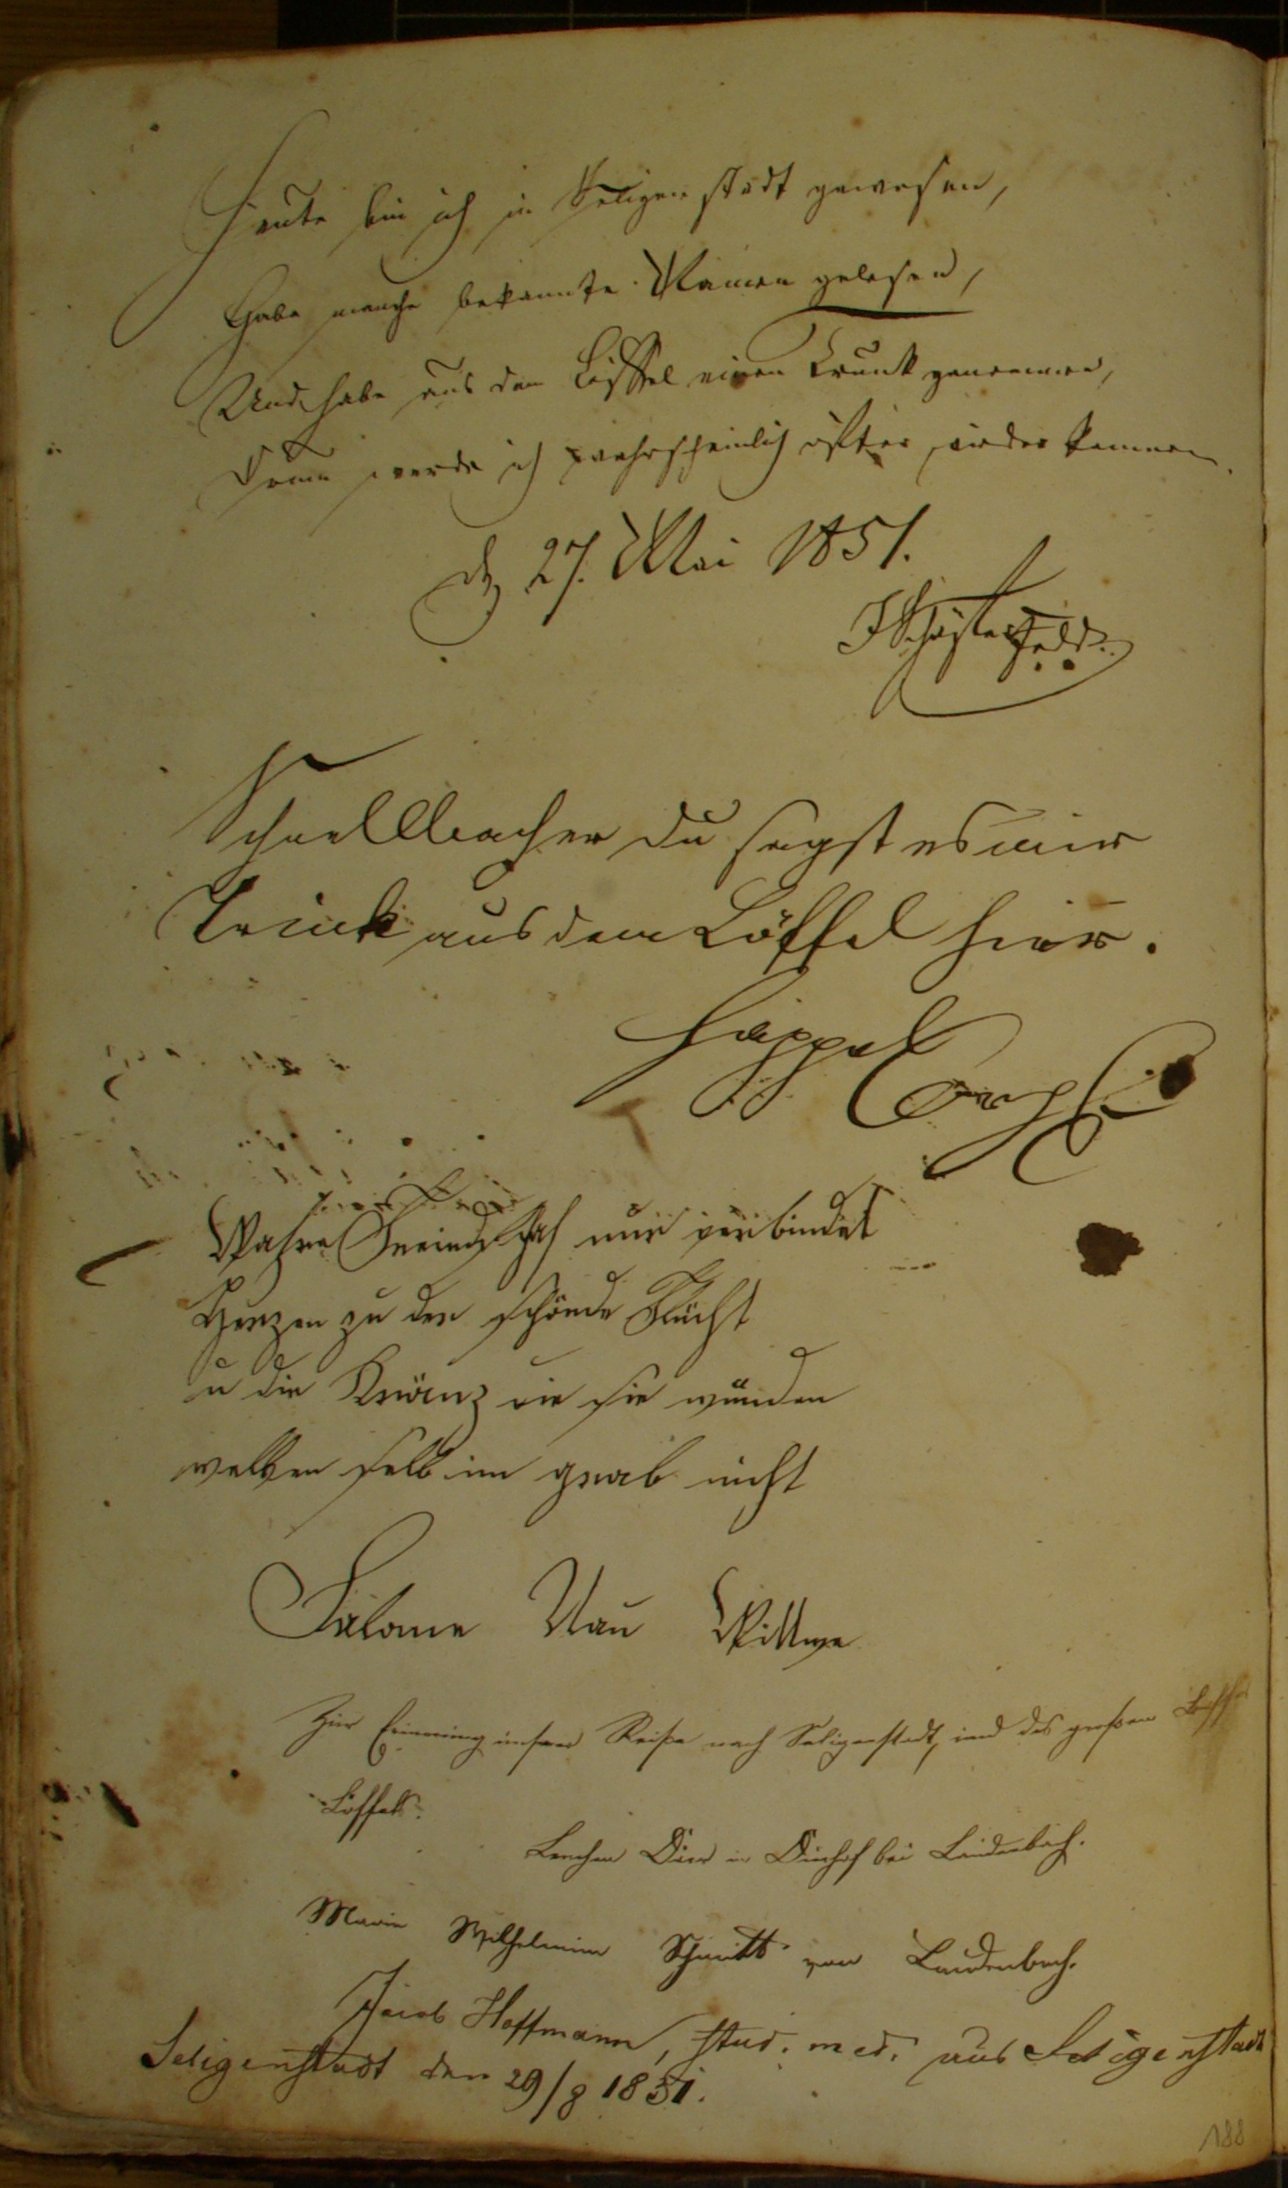 Heute bin ich in Seligenstadt gewesen,
Habe manche bekannte Namen gelesen,
Und habe aus dem Löffel einen Trunk genommen,
Drum werde ich wahrscheinlich öfter wieder kommen.
d. 27. Mai 1851.
Schnellbacher du sagst es mir
Trink aus dem Löffel hier.
Happel
Wahre Freundschaf nur verbindet
Herzen zu der schönde
u die Kränz die sie wunden
welken selb im grab nicht
Salome Nau Wittwe
Zur Erinnrung unserer Reise nach Seligenstadt, und des großen
Löffels.
Lenchen in bei Laudenbach.
Marie Wilhelmine Schmitt von Laudenbach.
Jacob Hoffmann, stud. med. aus Seligenstadt
Seligenstadt den 29/8 1851.
188